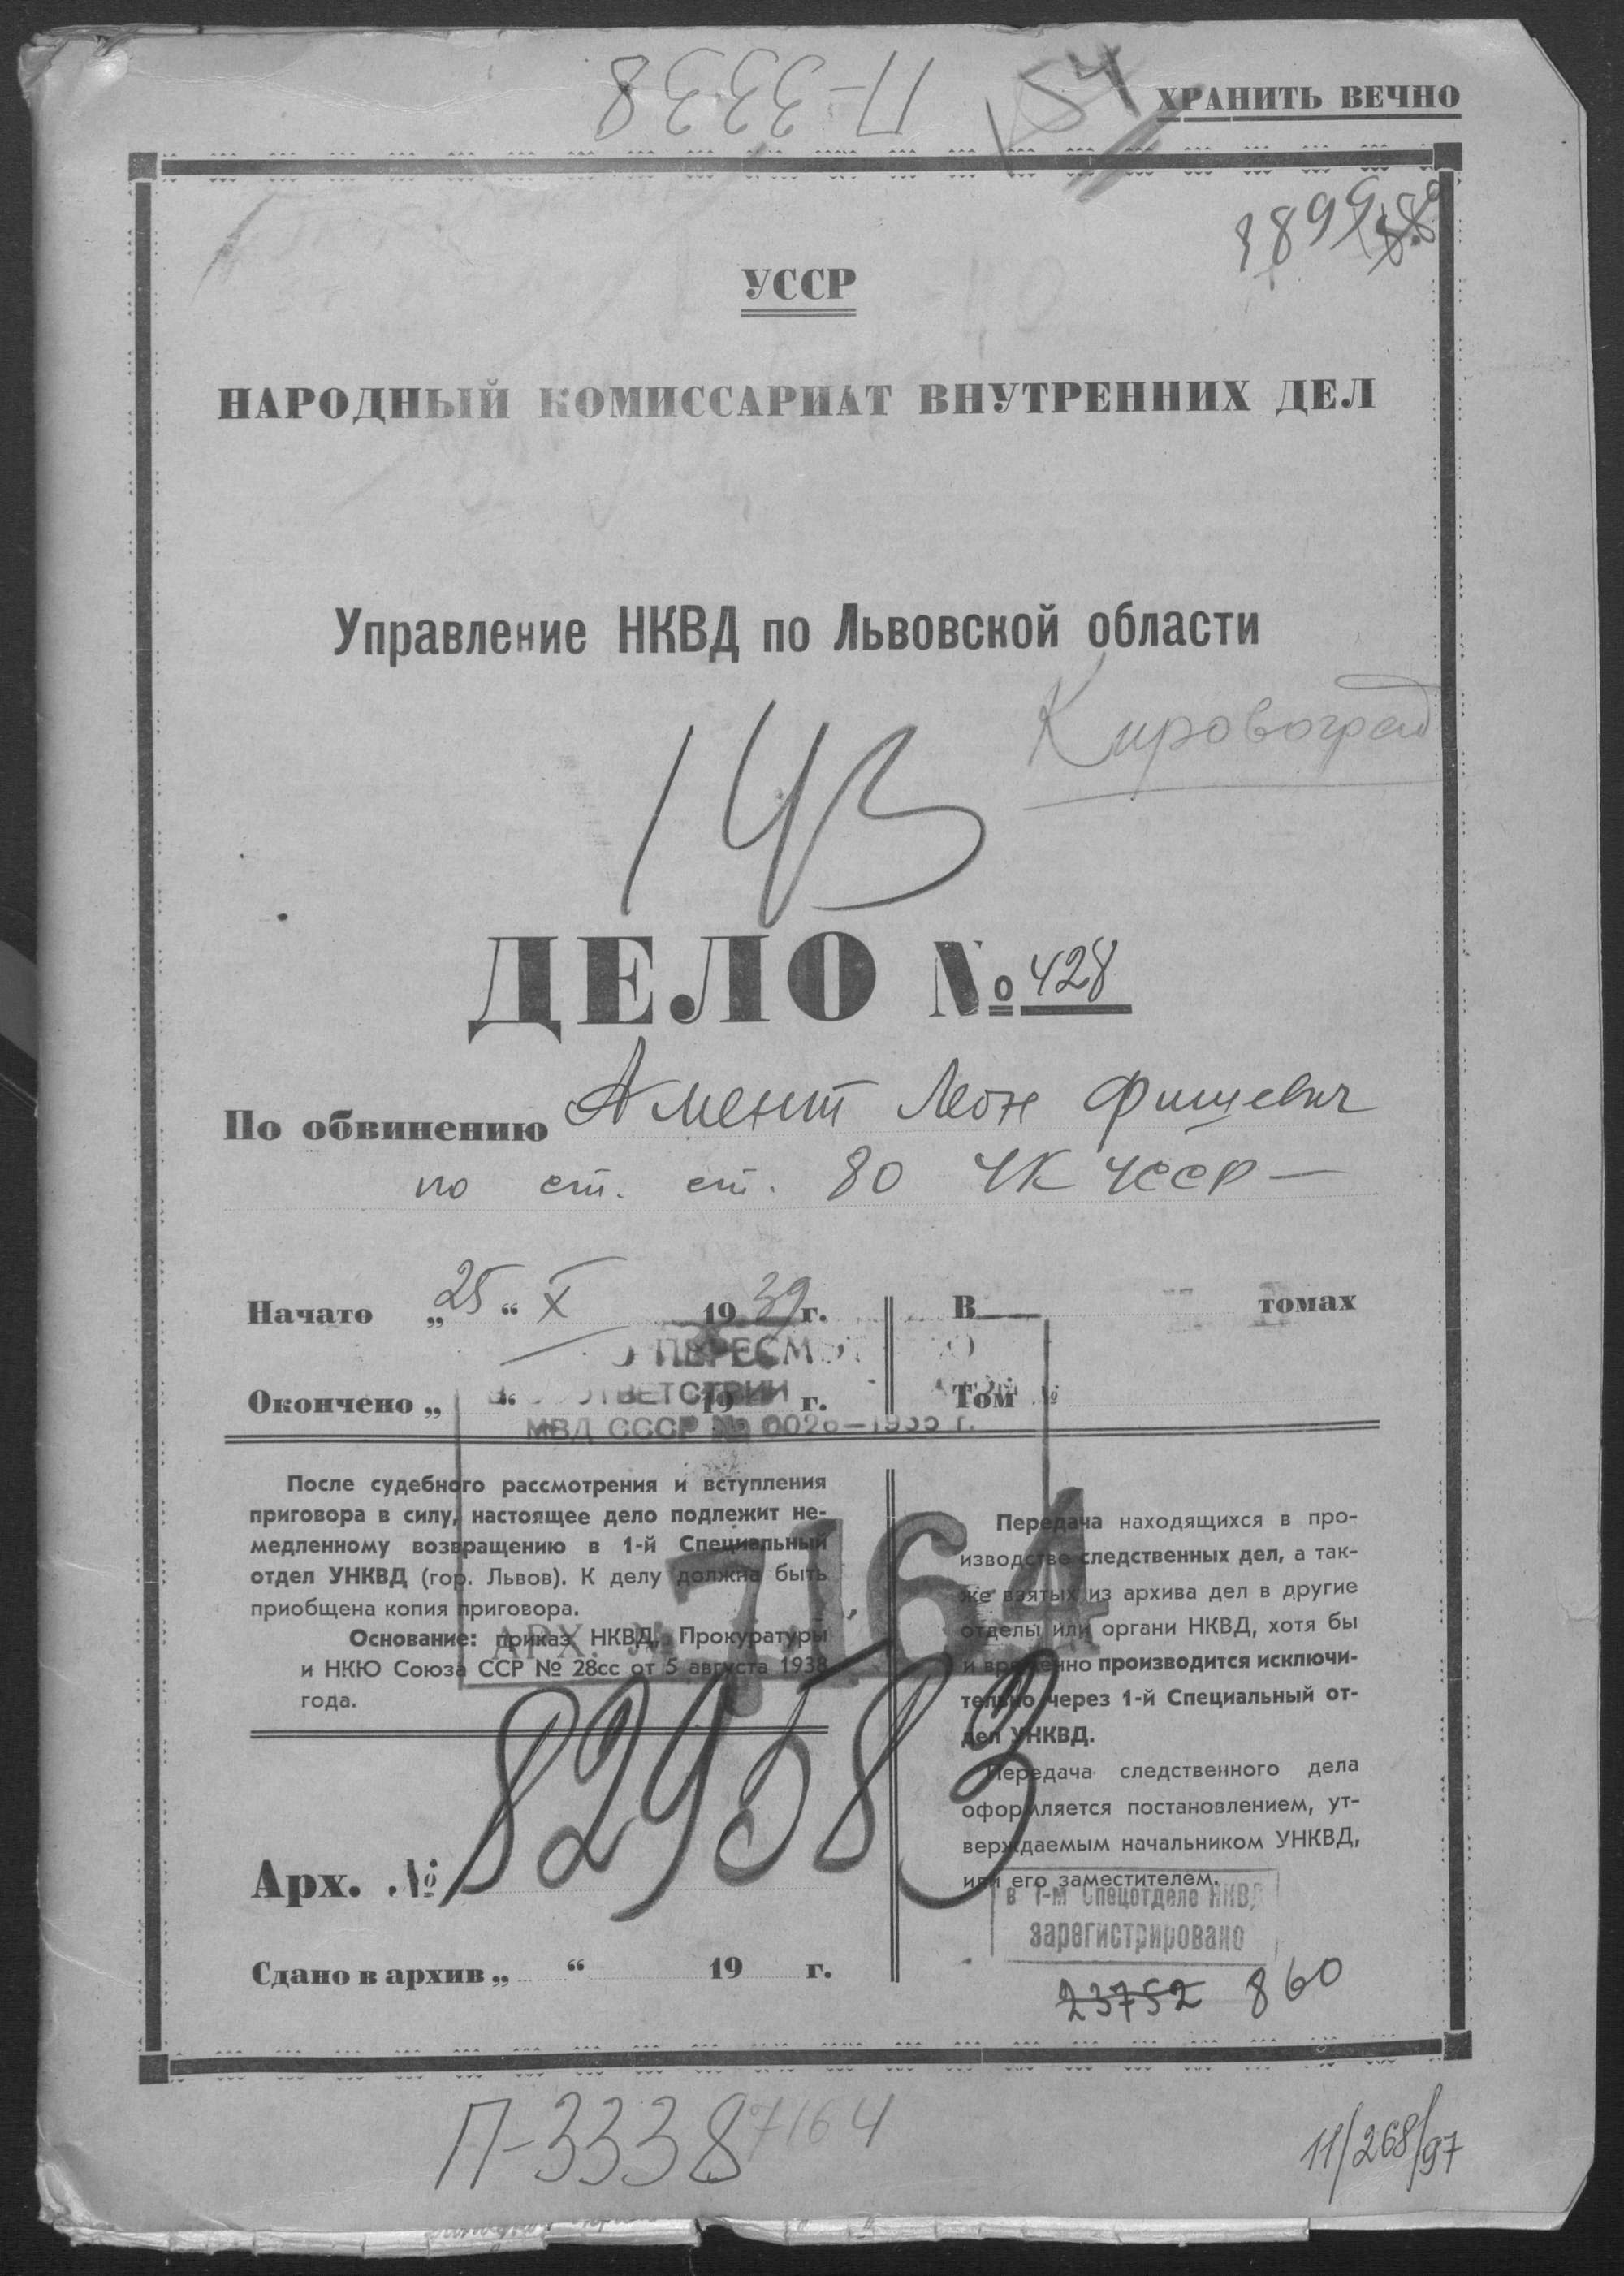 П-3338
154
ХРАНИТЬ ВЕЧНО
УССР
НАРОДНЫЙ КОМИССАРИАТ ВНУТРЕННИХ ДЕЛ
Управление НКВД по Львовской области
Кировоград
143
ДЕЛО № 428
По обвинению Амент Леон Фишевич
по ст. ст. 80 УК УССР —
Начато „25“ X 1939 г.
Окончено „ “ 19 г.
В томах
Том №
МВД СССР № 0026—1955 г.
После судебного рассмотрения и вступления
приговора в силу, настоящее дело подлежит не-
медленному возвращению в 1-й Специальный
отдел УНКВД (гор. Львов). К делу должна быть
приобщена копия приговора.
Основание: приказ НКВД, Прокуратуры
и НКЮ Союза ССР № 28сс от 5 августа 1938
года.
АРХ. № 7164
Передача находящихся в про-
изводстве следственных дел, а так-
же взятых из архива дел в другие
отделы или органи НКВД, хотя бы
и временно производится исключи-
тельно через 1-й Специальный от-
дел УНКВД.
Передача следственного дела
оформляется постановлением, ут-
верждаемым начальником УНКВД,
или его заместителем.
Арх. № 829583
Сдано в архив „ “ 19 г.
в 1-м Спецотделе НКВД
зарегистрировано
23752 860
П-3338 7164
11/268/97